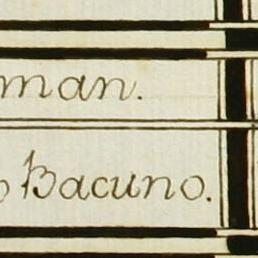 man.
Bacuno.